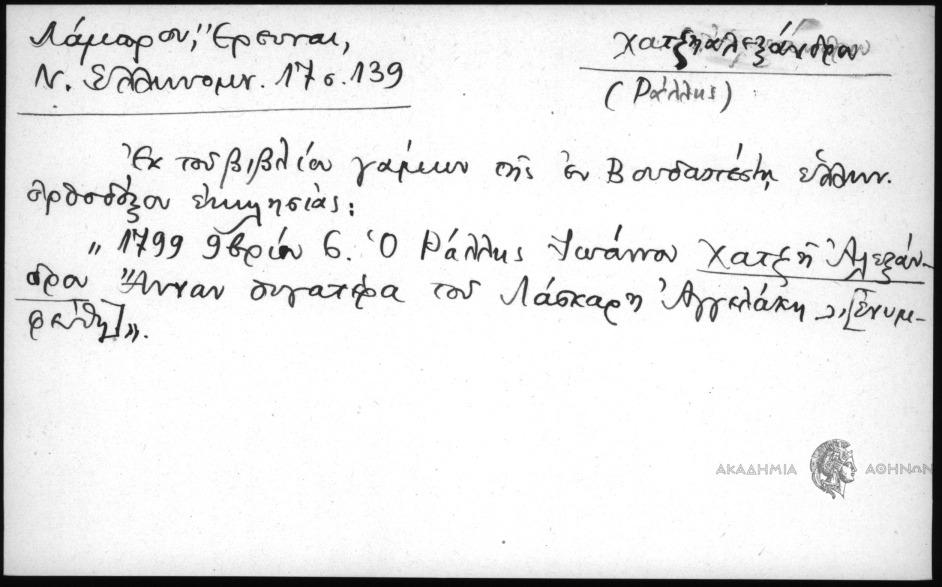 Λάμπρου, Ἔρευναι,
Ν. Ἑλληνομν. 17 σ. 139
Χατζηαλεξάνδρου
(Ράλλης)
Ἐκ τοῦ βιβλίου γάμων τῆς ἐν Βουδαπέστῃ ἑλλην.
ὀρθοδόξου ἐκκλησίας:
„ 1799 9βρίου 6. Ὁ Ράλλης Ἰωάννου Χατζῆ Ἀλεξάν-
δρου Ἄνναν θυγατέρα τοῦ Λάσκαρη Ἀγγελάκη „ [Ἐνυμ-
φεύθη]».
ΑΚΑΔΗΜΙΑ ΑΘΗΝΩΝ